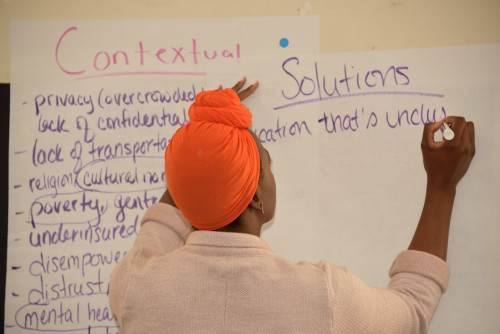 Contextual
- privacy (overcrowded
lack of confidential
- lack of transporta
- religion, cultural nor
- poverty, gent
- underinsured
- disempower
- distrust,
mental hea
Solutions
cation that's unclu